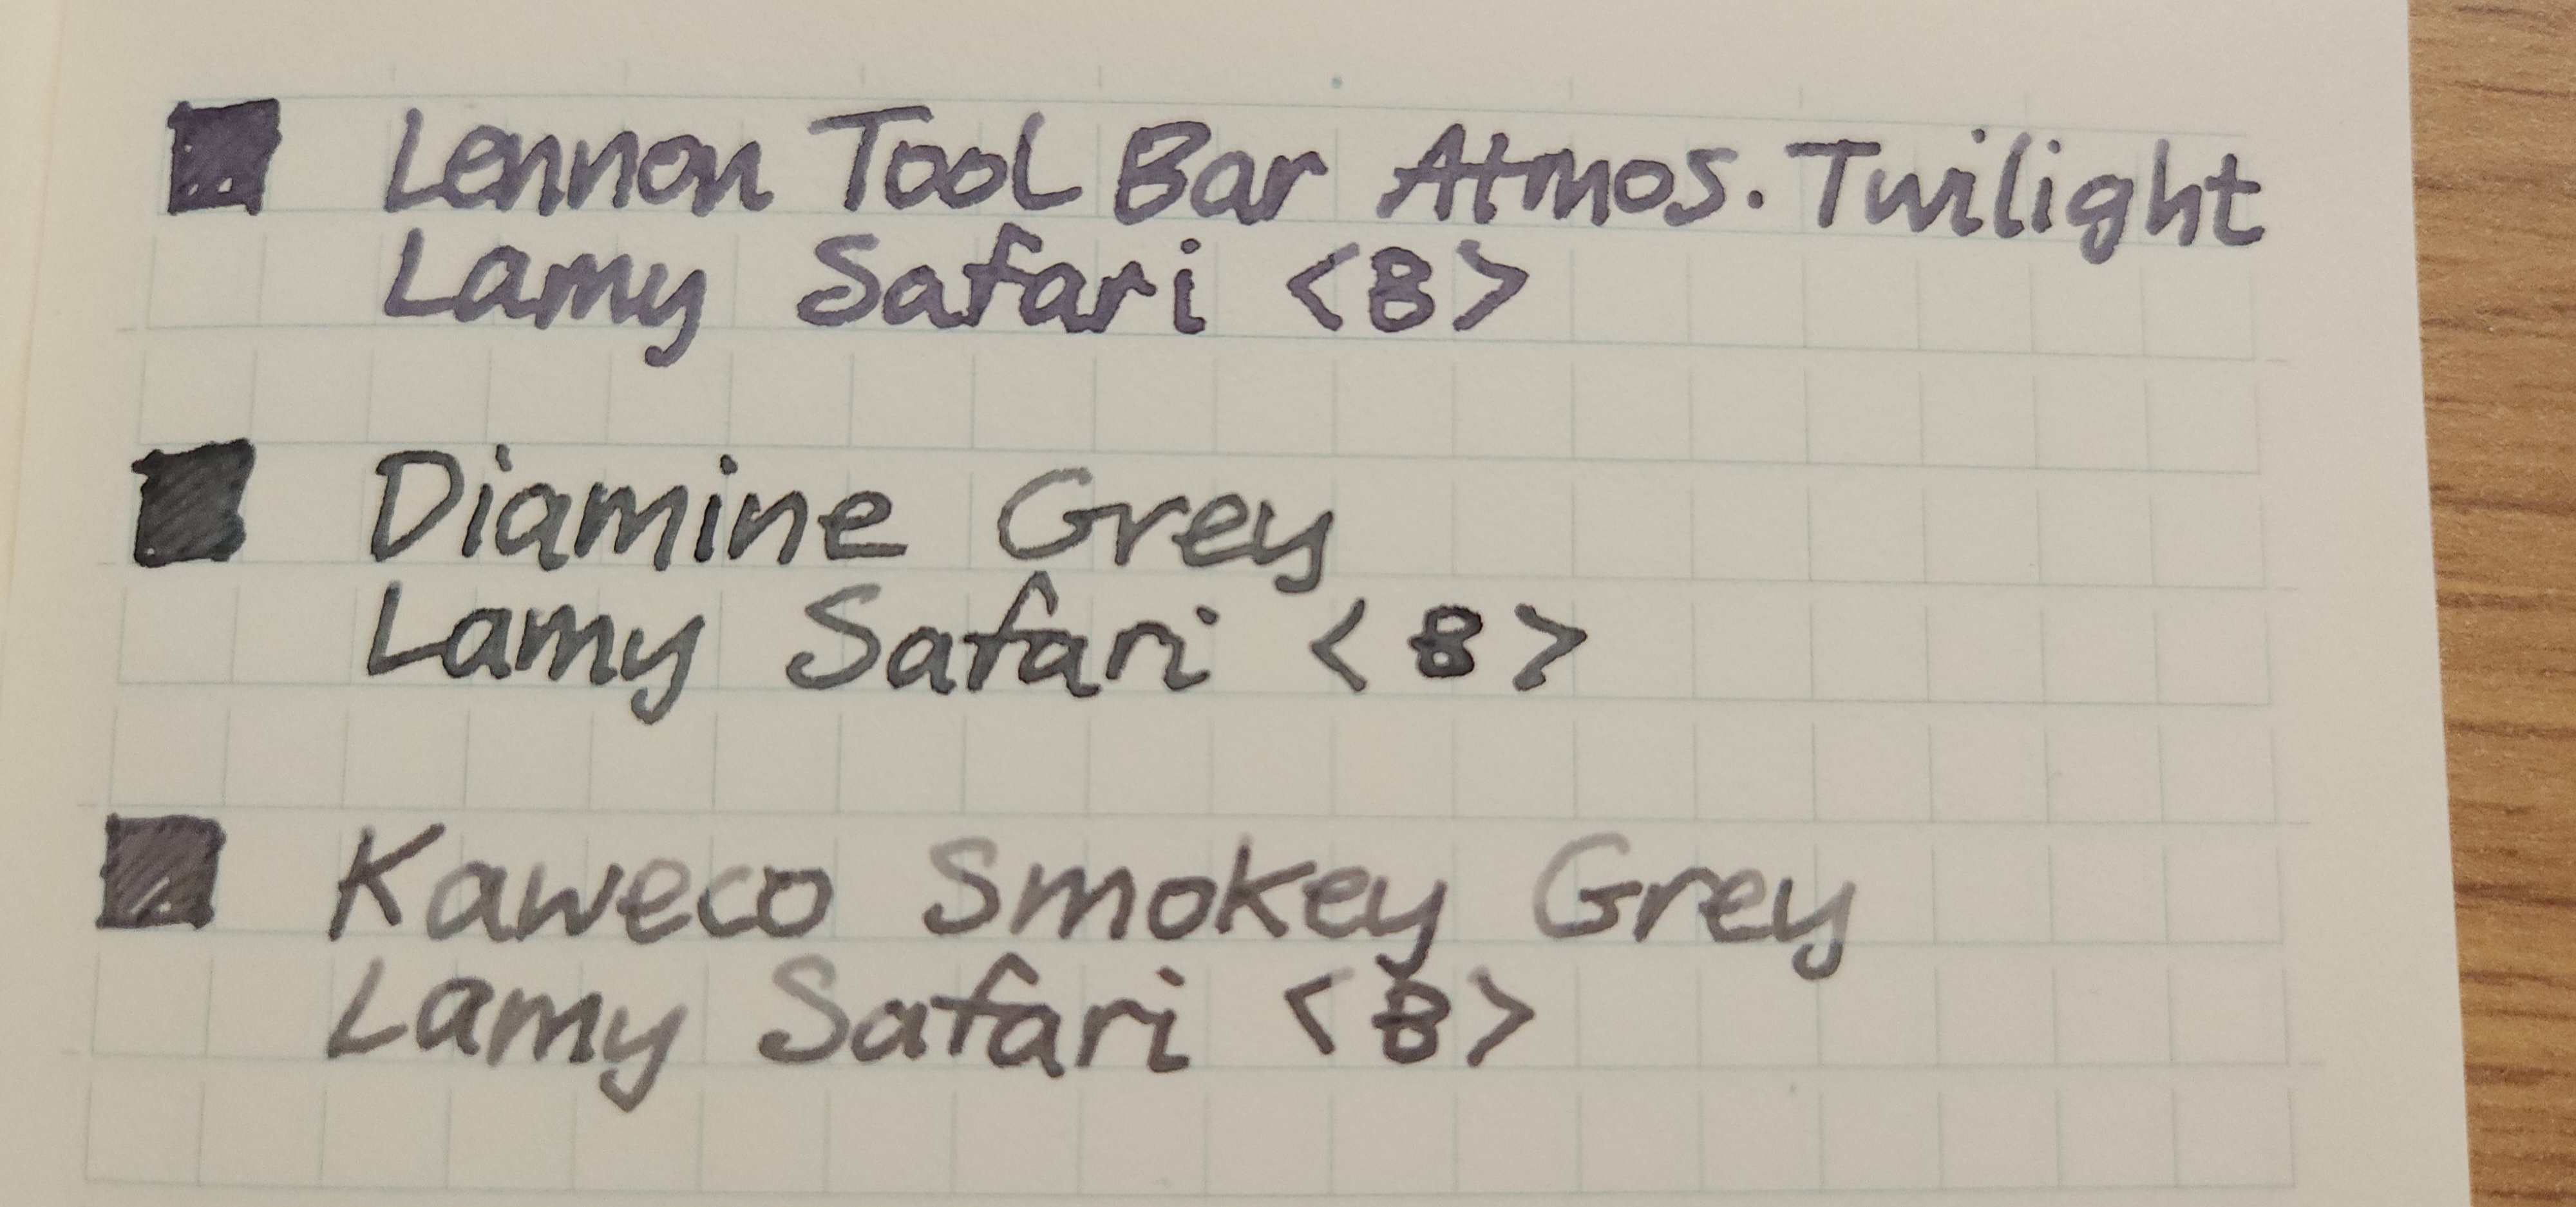 Lennon Tool Bar Atmos. Twilight
Lamy Safari <B>
Diamine Grey
Lamy Safari <B>
Kaweco Smokey Grey
Lamy Safari <B>